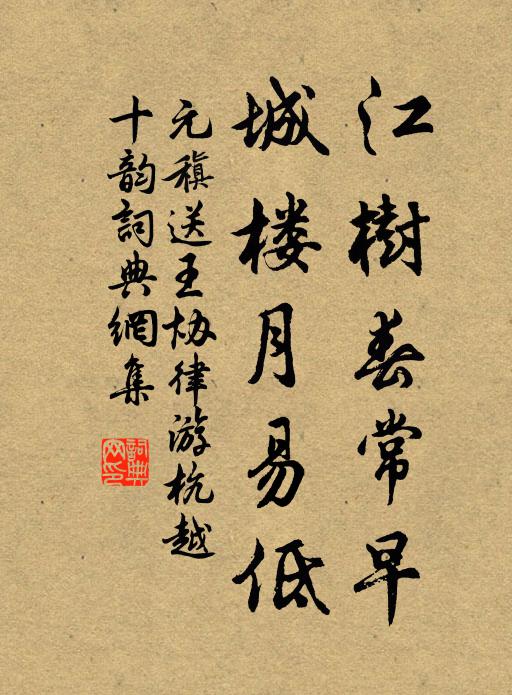 江樹春常早
城楼月易低
元稹送王协律游杭越
十韵詞典網集
詞典网印